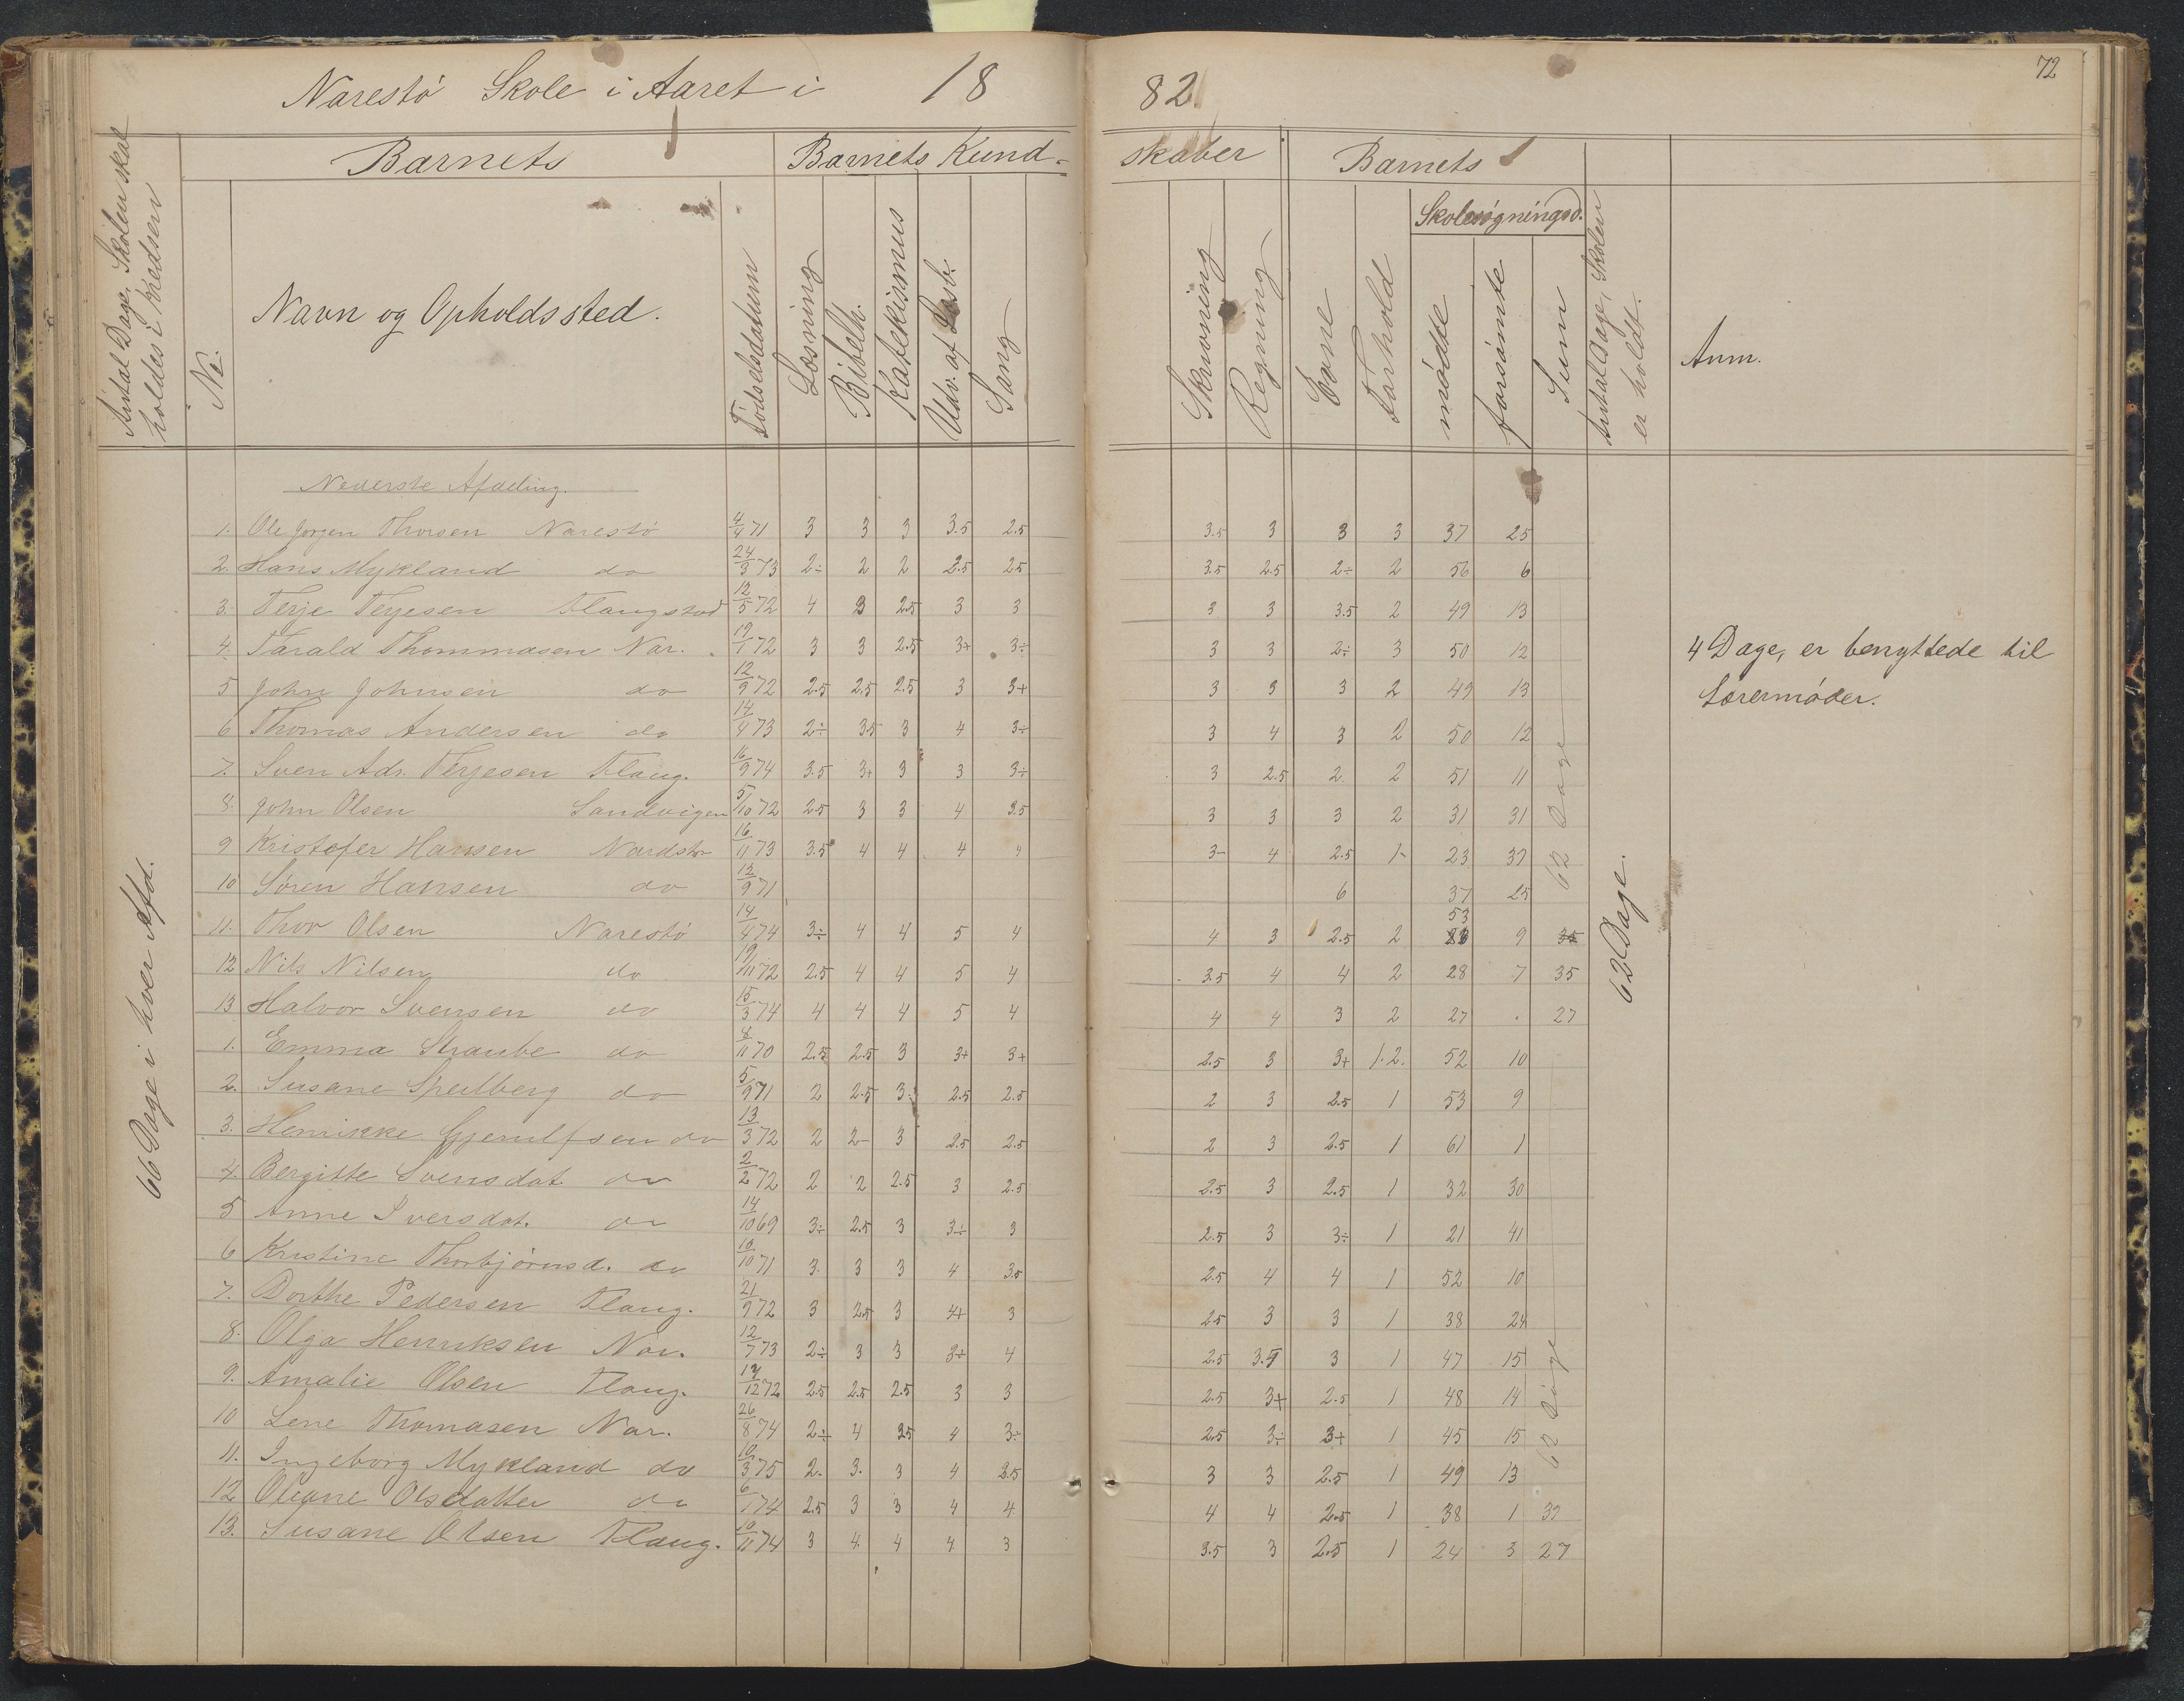 72
Narestø Skole i Aaret i 1882.
Antal Dage, Skolen skal holdes i Kredsen
No.
Barnets
Navn og Opholdssted.
Fødselsdatum
Barnets Kundskaber
Læsning
Bibelh.
Katekismus
Udv. af Læsb.
Sang
Skrivning
Regning
Barnets
Evne
Forhold
Skolesøgningsd.
mødte
forsømte
Sum
Antal Dage, Skolen er holdt.
Anm.
66 Dage i hver Afd.
Nederste Afdeling.
1. Ole Jørgen Thorsen Narestø 4/4 71 3 3 3 3.5 2.5 3.5 3 3 3 37 25
2. Hans Mykland do 24/3 73 2÷ 2 2 2.5 2.5 3.5 2.5 2÷ 2 56 6
3. Terje Terjesen Flangstad 12/5 72 4 3 2.5 3 3 3 3 3.5 2 49 13
4. Tarald Thommasen Nar. 19/1 72 3 3 2.5 3+ 3÷ 3 3 2÷ 3 50 12
5 John Johnsen do 12/9 72 2.5 2.5 2.5 3 3+ 3 3 3 2 49 13
6 Thomas Andersen do 14/4 73 2÷ 3.5 3 4 3÷ 3 4 3 2 50 12
7. Sven Adr. Terjesen Flang. 16/9 74 3.5 3+ 3 3 3÷ 3 2.5 2 2 51 11
8. John Olsen Sandvigen 5/10 72 2.5 3 3 4 3.5 3 3 3 2 31 31
9 Kristofer Hansen 16/11 73 3.5 4 4 4 4 3- 4 2.5 1- 23 39
10 Søren Hansen do 12/9 71 6 37 25
11. Thor Olsen Narestø 14/4 74 3÷ 4 4 5 4 4 3 2.5 2 53 9 35
12 Nils Nilsen do 19/11 72 2.5 4 4 5 4 3.5 4 4 2 28 7 35
13 Halvor Svensen do 15/3 74 4 4 4 5 4 4 4 3 2 27 . 27
1. Emma Straube do 8/11 70 2.5 2.5 3 3+ 3+ 2.5 3 3+ 1.2. 52 10
2. Susane Speilberg do 5/9 71 2 2.5 3÷ 2.5 2.5 2 3 2.5 1 53 9
3. Henrikke Gjerulfsen do 13/3 72 2 2- 3 2.5 2.5 2 3 2.5 1 61 1
4. Bergitte Svensdat. do 2/2 72 2 2 2.5 3 2.5 2.5 3 2.5 1 32 30
5 Anne Iversdat. do 14/10 69 3÷ 2.5 3 3÷ 3 2.5 3 3÷ 1 21 41
6 Kristine Thorbjørnsd. do 10/10 71 3. 3 3 4 3.5 2.5 4 4 1 52 10
7. Dorthe Pedersen Flang. 21/9 72 3 2.5 3 4+ 3 2.5 3 3 1 38 24
8. Olga Henriksen Nar. 12/7 73 2÷ 3 3 3÷ 4 2.5 3.5 3 1 47 15
9. Amalie Olsen Flang. 12/12 72 2.5 2.5 2.5 3 3 2.5 3+ 2.5 1 48 14
10 Lene Thomasen Nar. 26/8 74 2÷ 4 3.5 4 3÷ 2.5 3÷ 3+ 1 45 15
11. Ingeborg Mykland do 10/3 75 2. 3. 3 4 2.5 3 3 2.5 1 49 13
12 Oleane Olsdatter do 6/1 74 2.5 3 3 4 4 4 4 2.5 1 38 1 39
13. Susane Olsen Flang. 10/11 74 3 4. 4 4 3 3.5 3 2.5 1 24 3 27
62 Dage
62 Dage
62 Dage.
4 Dage, er benyttede til
Lærermøder.